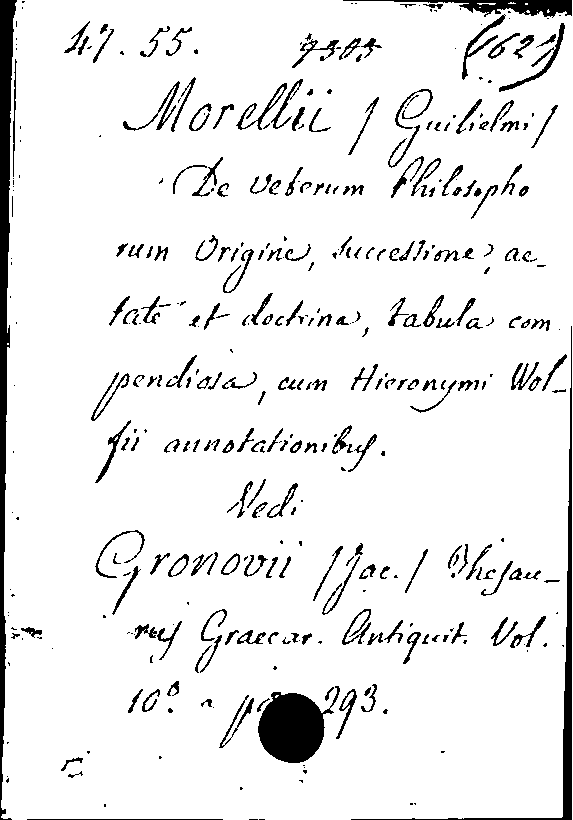 47. 55. 7303 (621)
Morellii / Guilielmi /
De veterum Philosopho
rum Origine, successione, ae-
tate et doctrina, tabula com
pendiosa, cum Hieronymi Wol-
fii annotationibus.
Vedi
Gronovii / Jac. / Thesau-
rus Graecar. Antiquit. Vol.
10.° a 293.